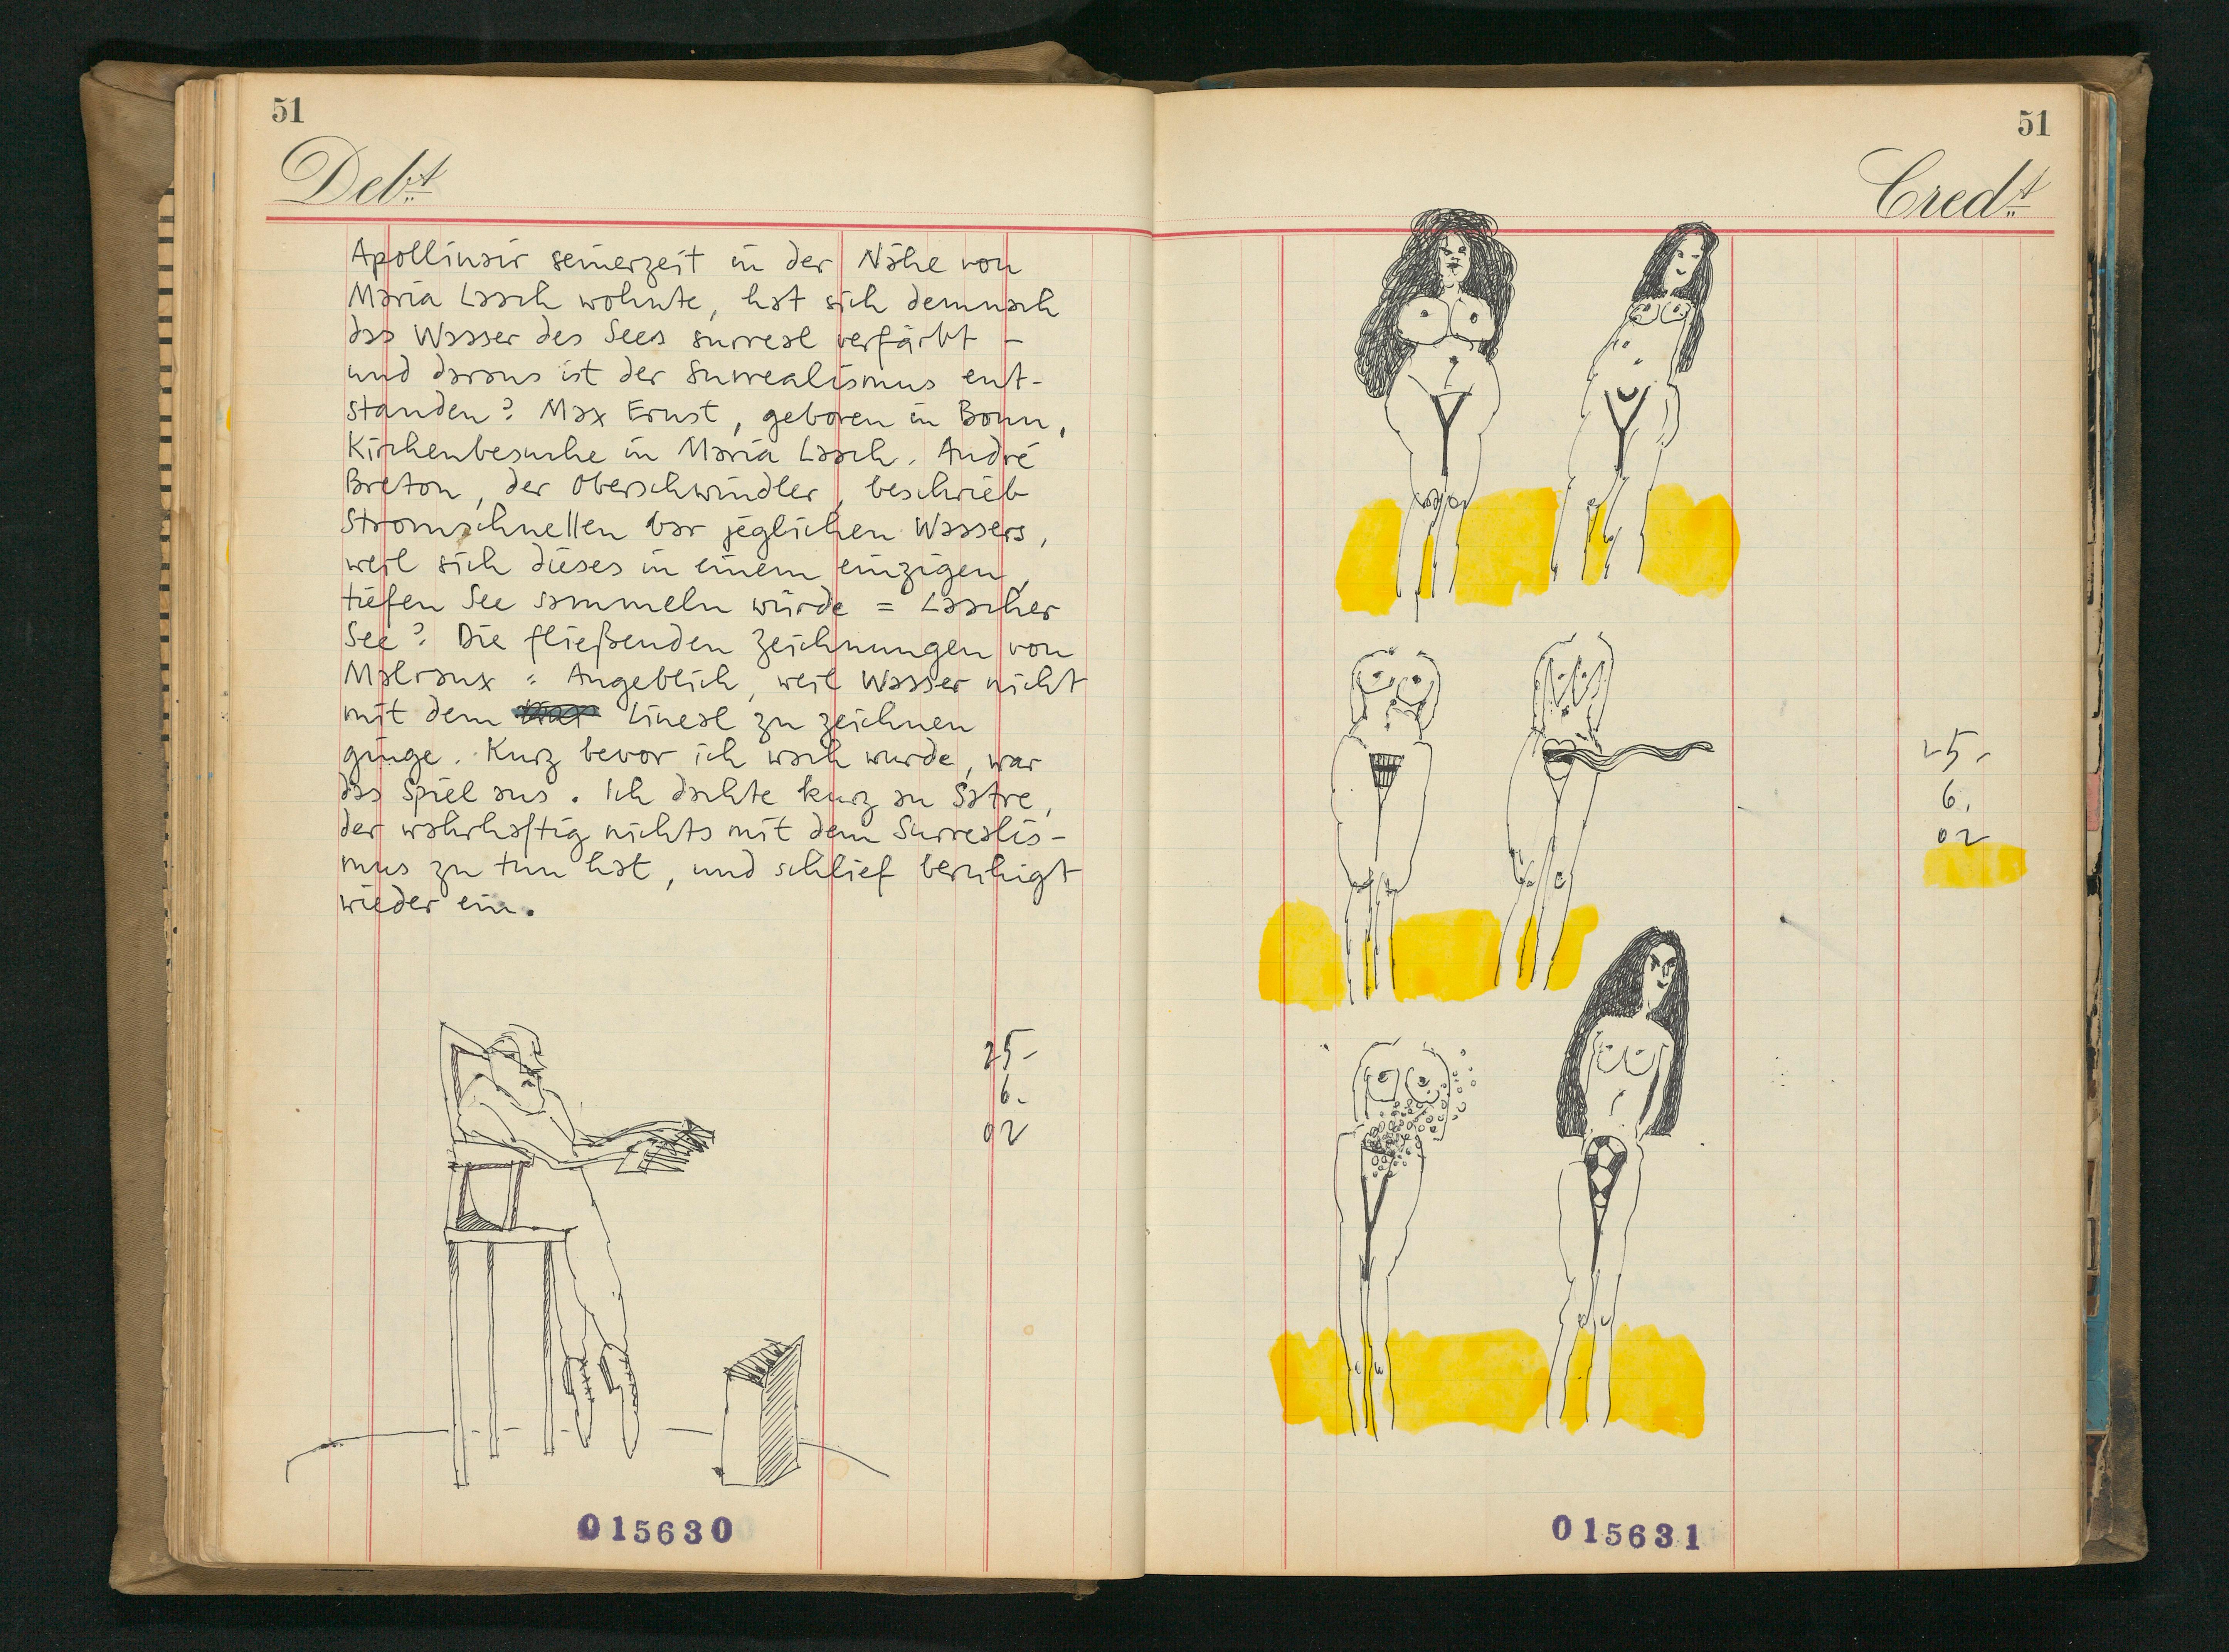 51
Debt
Apollinair seinerzeit in der Nähe von
Maria Laach wohnte, hat sich demnach
das Wasser des Sees surreal verfärbt –
und daraus ist der Surrealismus ent-
standen? Max Ernst, geboren in Bonn,
Kirchenbesuche in Maria Laach. André
Breton, der Oberschwindler, beschrieb
Stromschnellen bar jeglichen Wassers,
weil sich dieses in einem einzigen,
tiefen See sammeln würde = Laacher
See? Die fließenden Zeichnungen von
Malraux = Angeblich, weil Wasser nicht
mit dem Lineal zu zeichnen
ginge. Kurz bevor ich wach wurde, war
das Spiel aus. Ich dachte kurz an Satre,
der wahrhaftig nichts mit dem Surrealis-
mus zu tun hat, und schlief beruhigt
wieder ein.
25-
6.
02
015630
51
Credt
25-
6.
02
015631